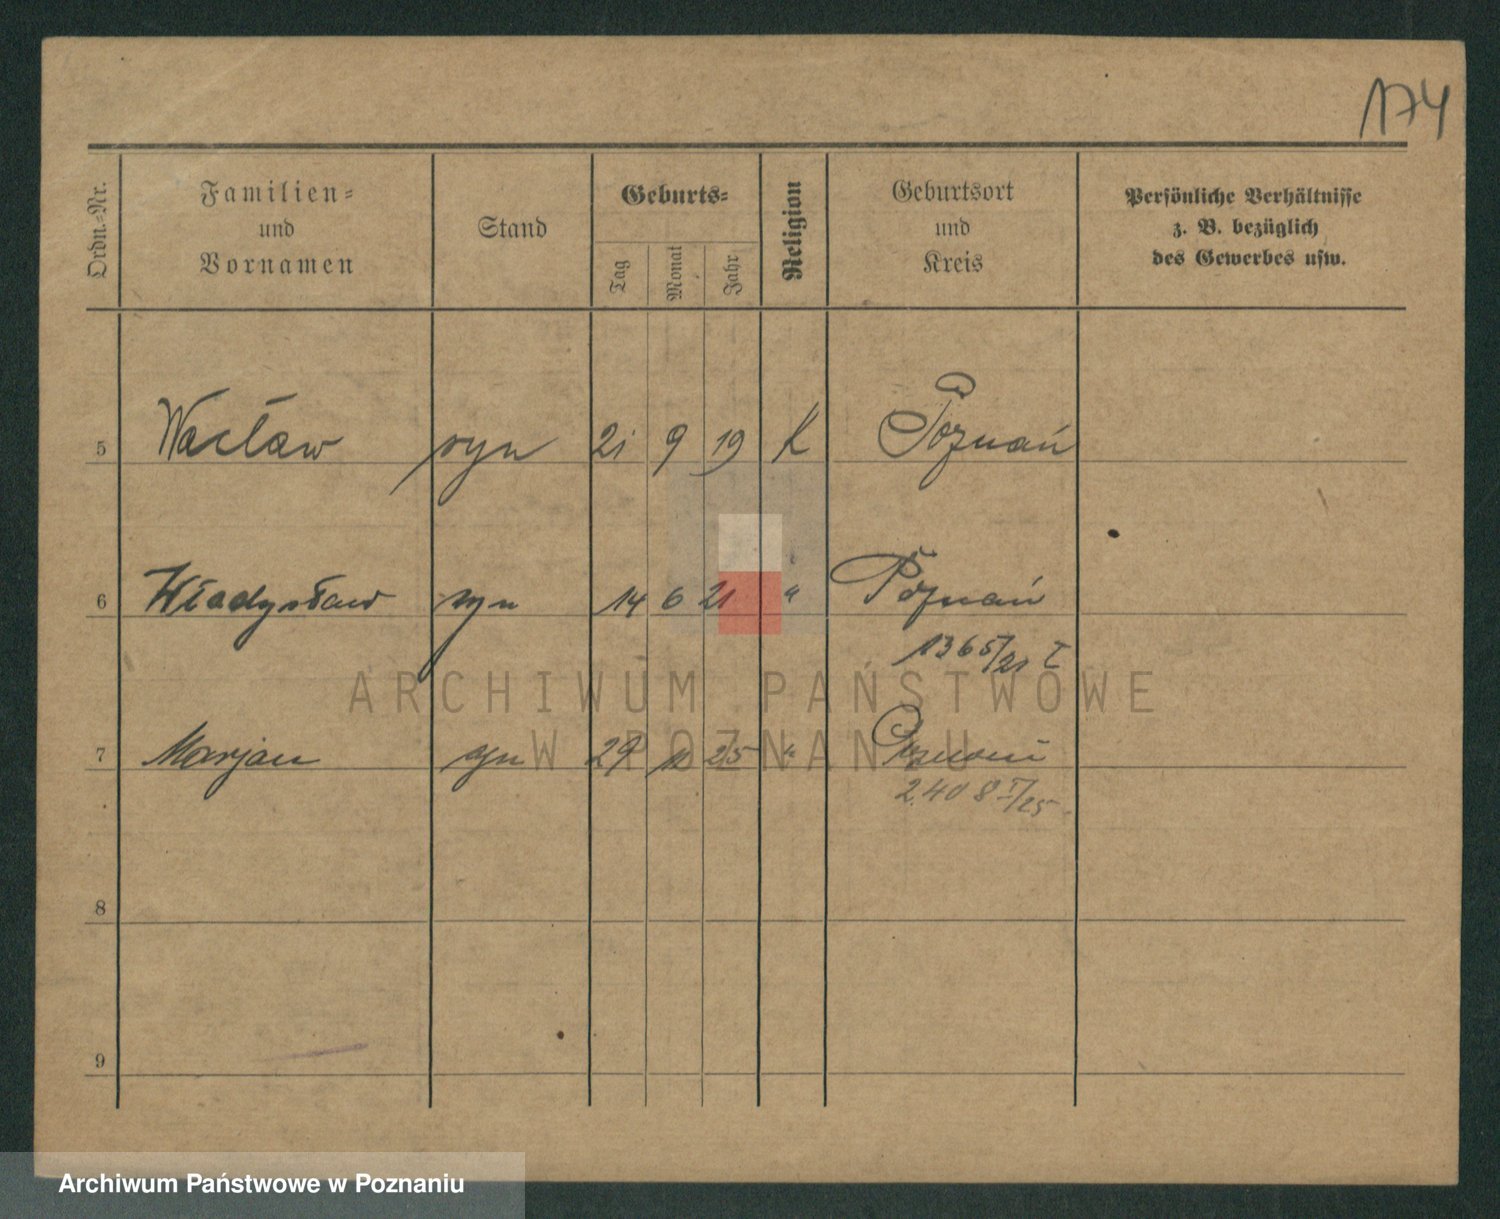 174
Ordn.-Nr.
Familien-
und
Vornamen
Stand
Geburts-
Tag
Monat
Jahr
Religion
Geburtsort
und
Kreis
Persönliche Verhältnisse
z. B. bezüglich
des Gewerbes usw.
5 Wacław syn 21 9 19 K Poznań
6 Władysław syn 14 6 21 " Poznań
1365/21 I
ARCHIWUM PAŃSTWOWE
W POZNANIU
7 Marjan syn 29 11 25 " Poznań
2408 I/25
8
9
Archiwum Państwowe w Poznaniu